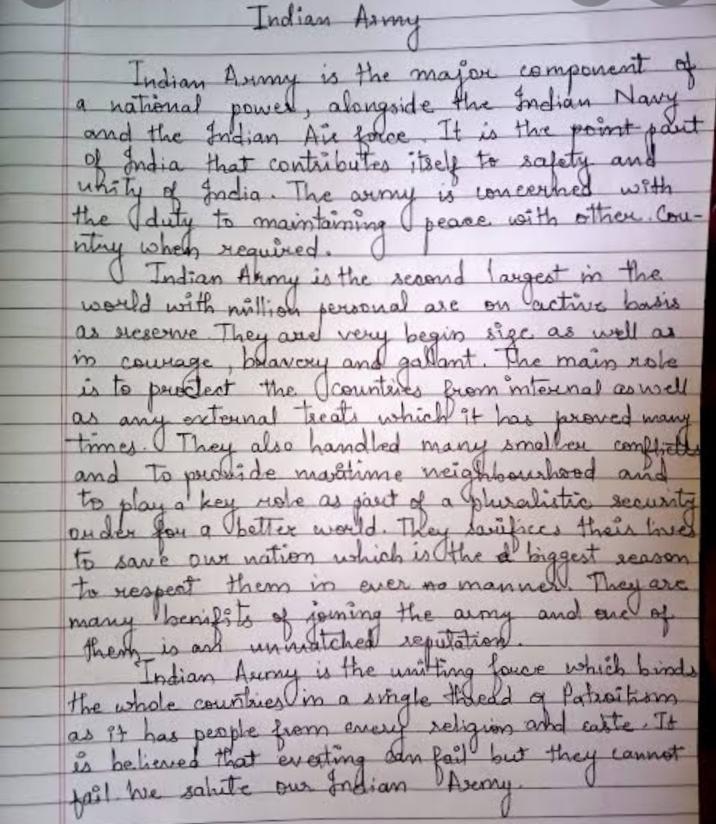 Indian Army
Indian Army is the major component of
a national power, alongside the Indian Navy
and the Indian Air force. It is the point part
of India that contributes itself to safety and
unity of India. The army is concerned with
the duty to maintaining peace with other Cou-
ntry when required.
Indian Army is the second largest in the
world with million personal are on active basis
as reserve. They are very begin size as well as
in courage, bravery and gallant. The main role
is to protect the countries from internal as well
as any external treats which it has proved many
times. They also handled many smaller conflicts
and To provide maritime neighbourhood and
to play a key role as part of a pluralistic security
order for a better world. They sacrifices their lives
to save our nation which is the biggest reason
to respect them in ever no manner. They are
many benifits of joining the army and one of
them is an unmatched reputation.
Indian Army is the uniting force which binds
the whole countries in a single thread of Patroitism
as it has people from every religion and caste. It
is believed that everting can fail but they cannot
fail. We salute our Indian Army.